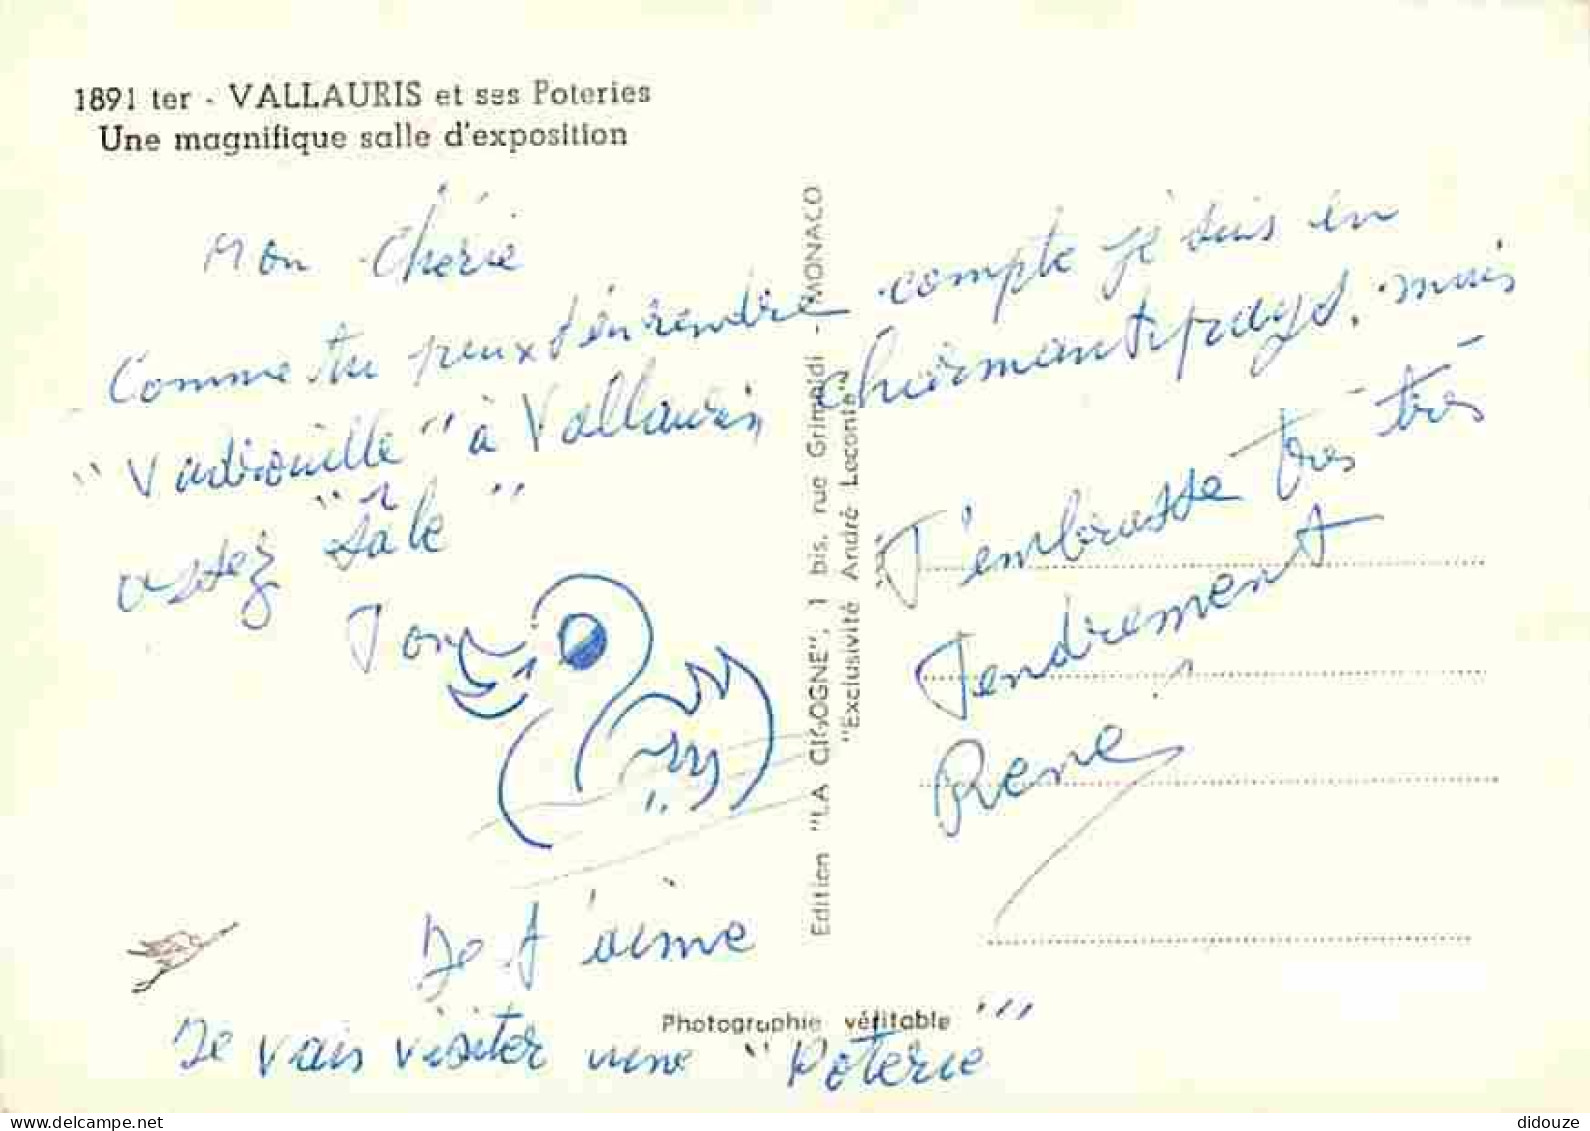 1891 ter - VALLAURIS et ses Poteries
Une magnifique salle d'exposition
Mon Chérie
Comme tu peux t'en rendre compte je suis en
"Vadrouille" à Vallauris charmant pays, mais
assez "sâle"
Ton
Je t'aime
Je vais visiter une "Poterie"
T'embrasse très très
Tendrement
René
Edition "LA CIGOGNE", 1 bis, rue Grimaldi - MONACO
"Exclusivité André Leconte"
Photographie véritable
didouze